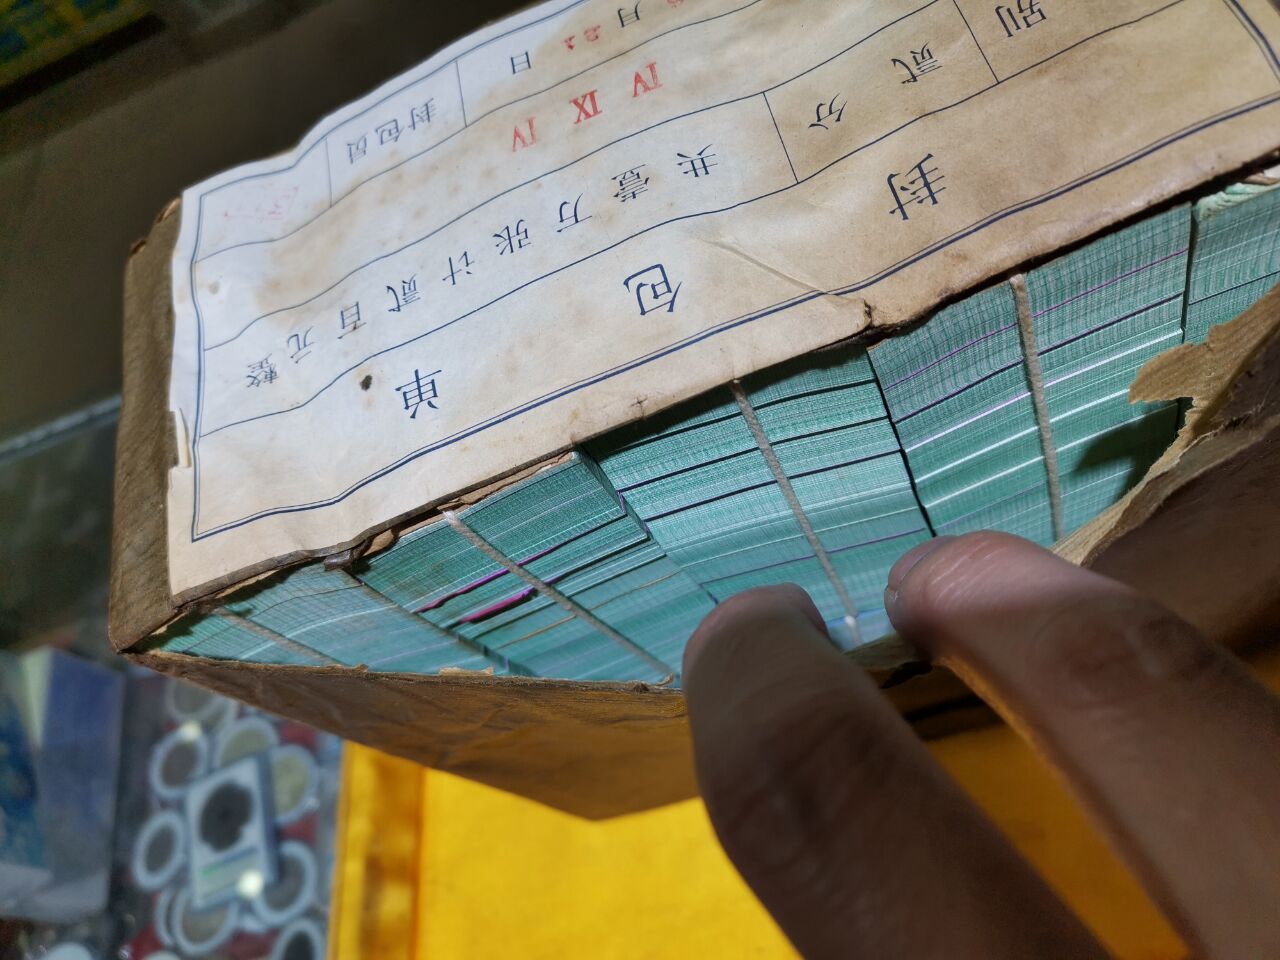 封包单
别 贰分 共壹万张计贰百元整
IV IX IV
月 21 日 封包员